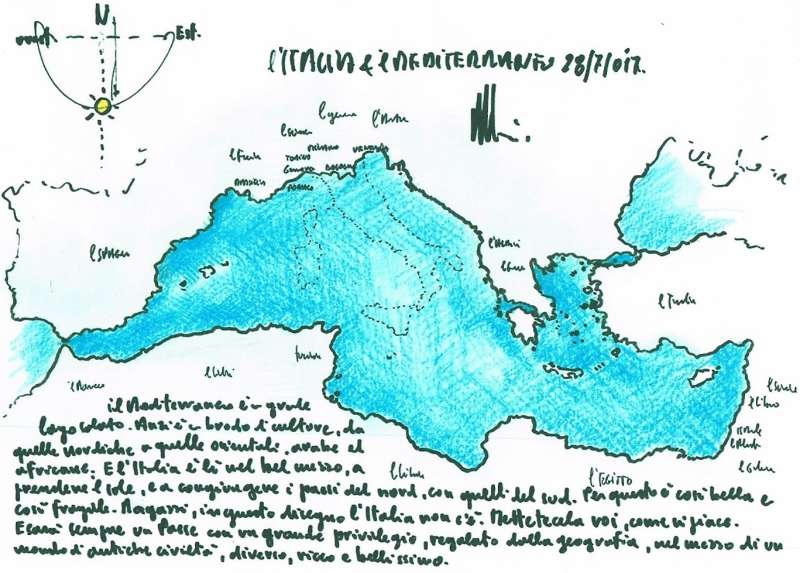 N
ovest Est.
l'ITALIA e il MEDITERRANEO 28/7/017.
l'Austria
la Francia
TORINO MILANO VENEZIA
GENOVA BOLOGNA
MARSIGLIA MONACO
la SPAGNA
la Turchia
Tunisia
il Marocco
la Libia
l'EGITTO
il Libano
il Mediterraneo è un grande
lago salato. Anzi è un brodo di culture, da
quelle nordiche a quelle orientali, arabe ed
africane. E l'Italia è lì nel bel mezzo, a
prendere il sole, e a congiungere i paesi del nord, con quelli del sud. Per questo è così bella e
così fragile. Ragazzi, in questo disegno l'Italia non c'è. Mettetecela voi, come vi piace.
E sarà sempre un Paese con un grande privilegio, regalato dalla geografia, nel mezzo di un
mondo di antiche civiltà, diverso, ricco e bellissimo.